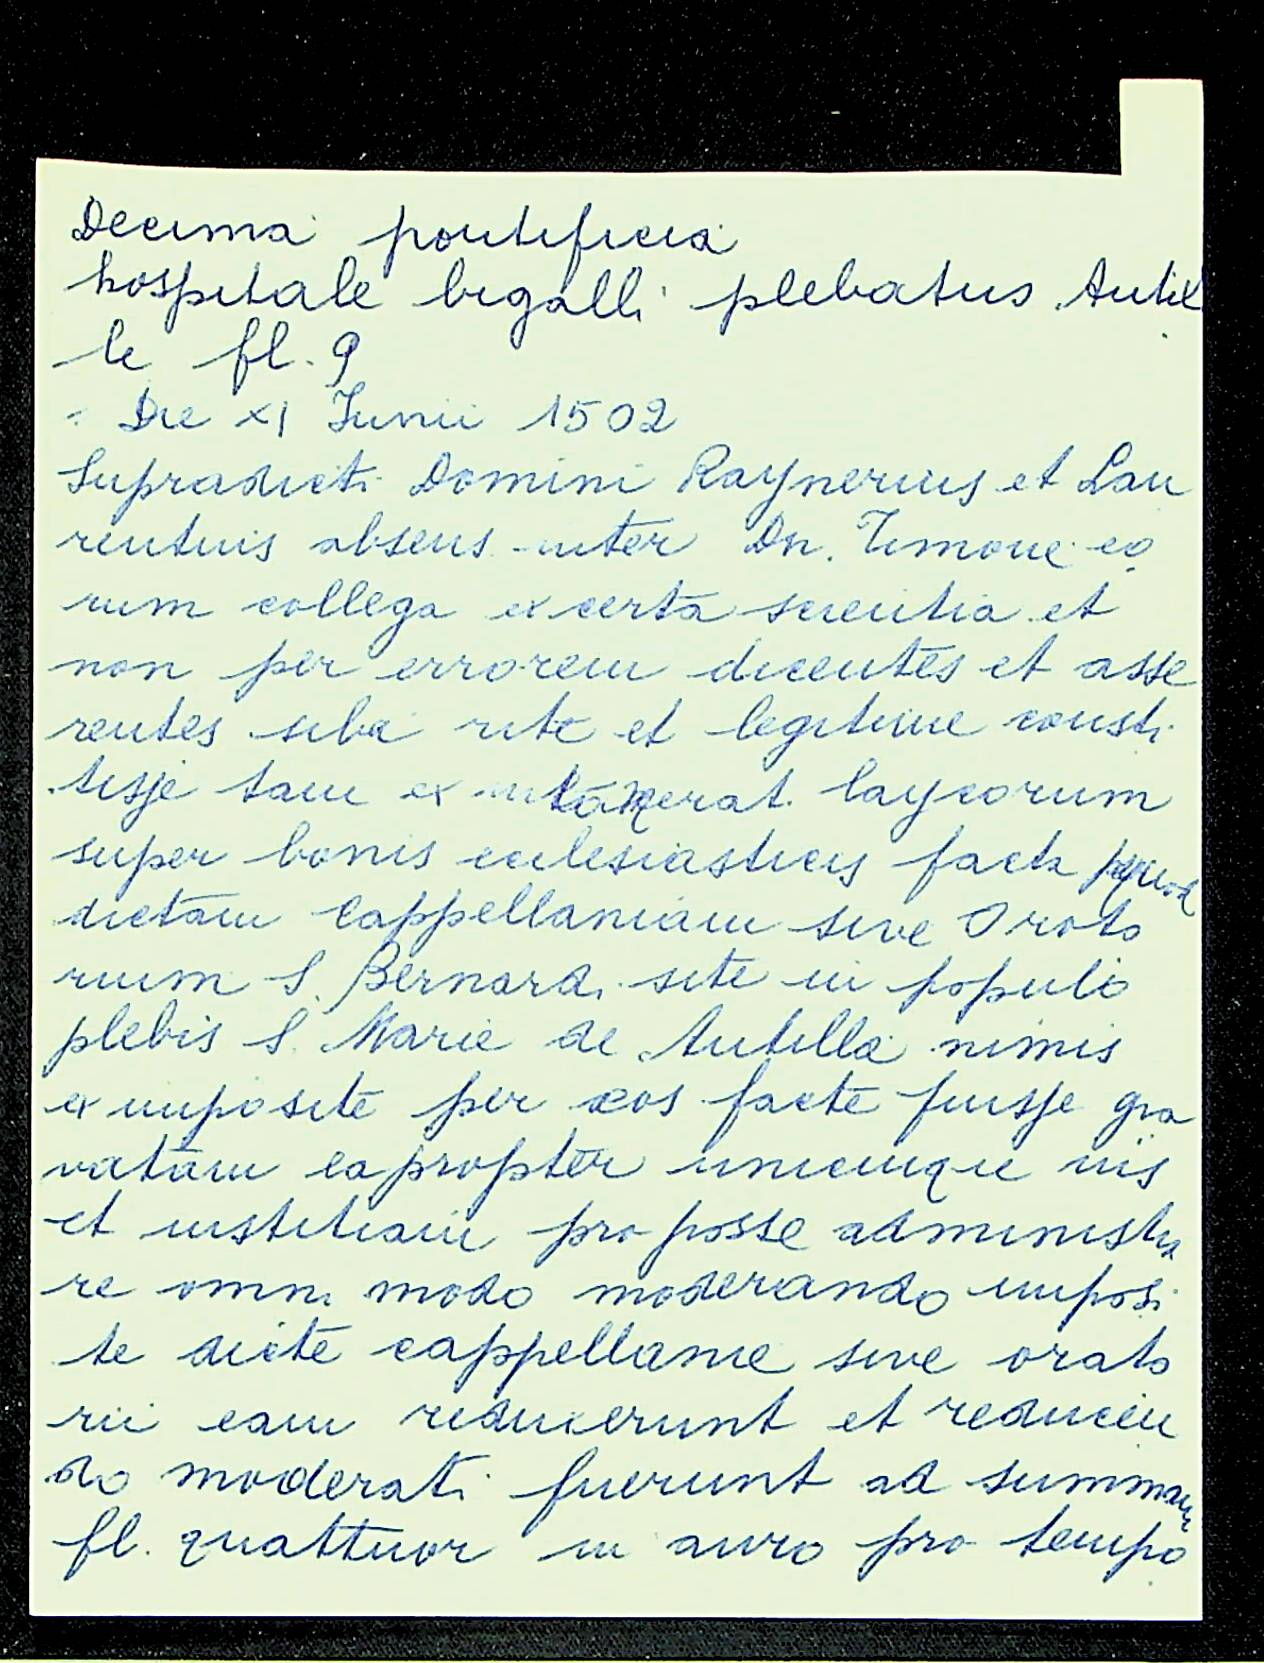 Decima pontificia
hospitale bigalli plebatus Antil
le fl. 9
Die XI Junii 1502
Supradicti Domini Raynerius et Lau
rentius absens inter Dn. Timone eo
rum collega ex certa scientia et
non per errorem dicentes et asse
rentes sibi rite et legitime consti
tisse tam ex laycorum
super bonis ecclesiasticis facta
dictam Cappellaniam sive Orato
rium S. Bernardi site in populo
plebis S. Marie de Antilla nimis
ex imposite per eos facte fuisse gra
vatam eapropter unicuique iüs
et iustitiam pro posse administra
re omni modo moderando imposi
te dicte cappellanie sive orato
rii eam reduxerunt et reducen
do moderati fuerunt ad summam
fl. quattuor in auro pro tempo